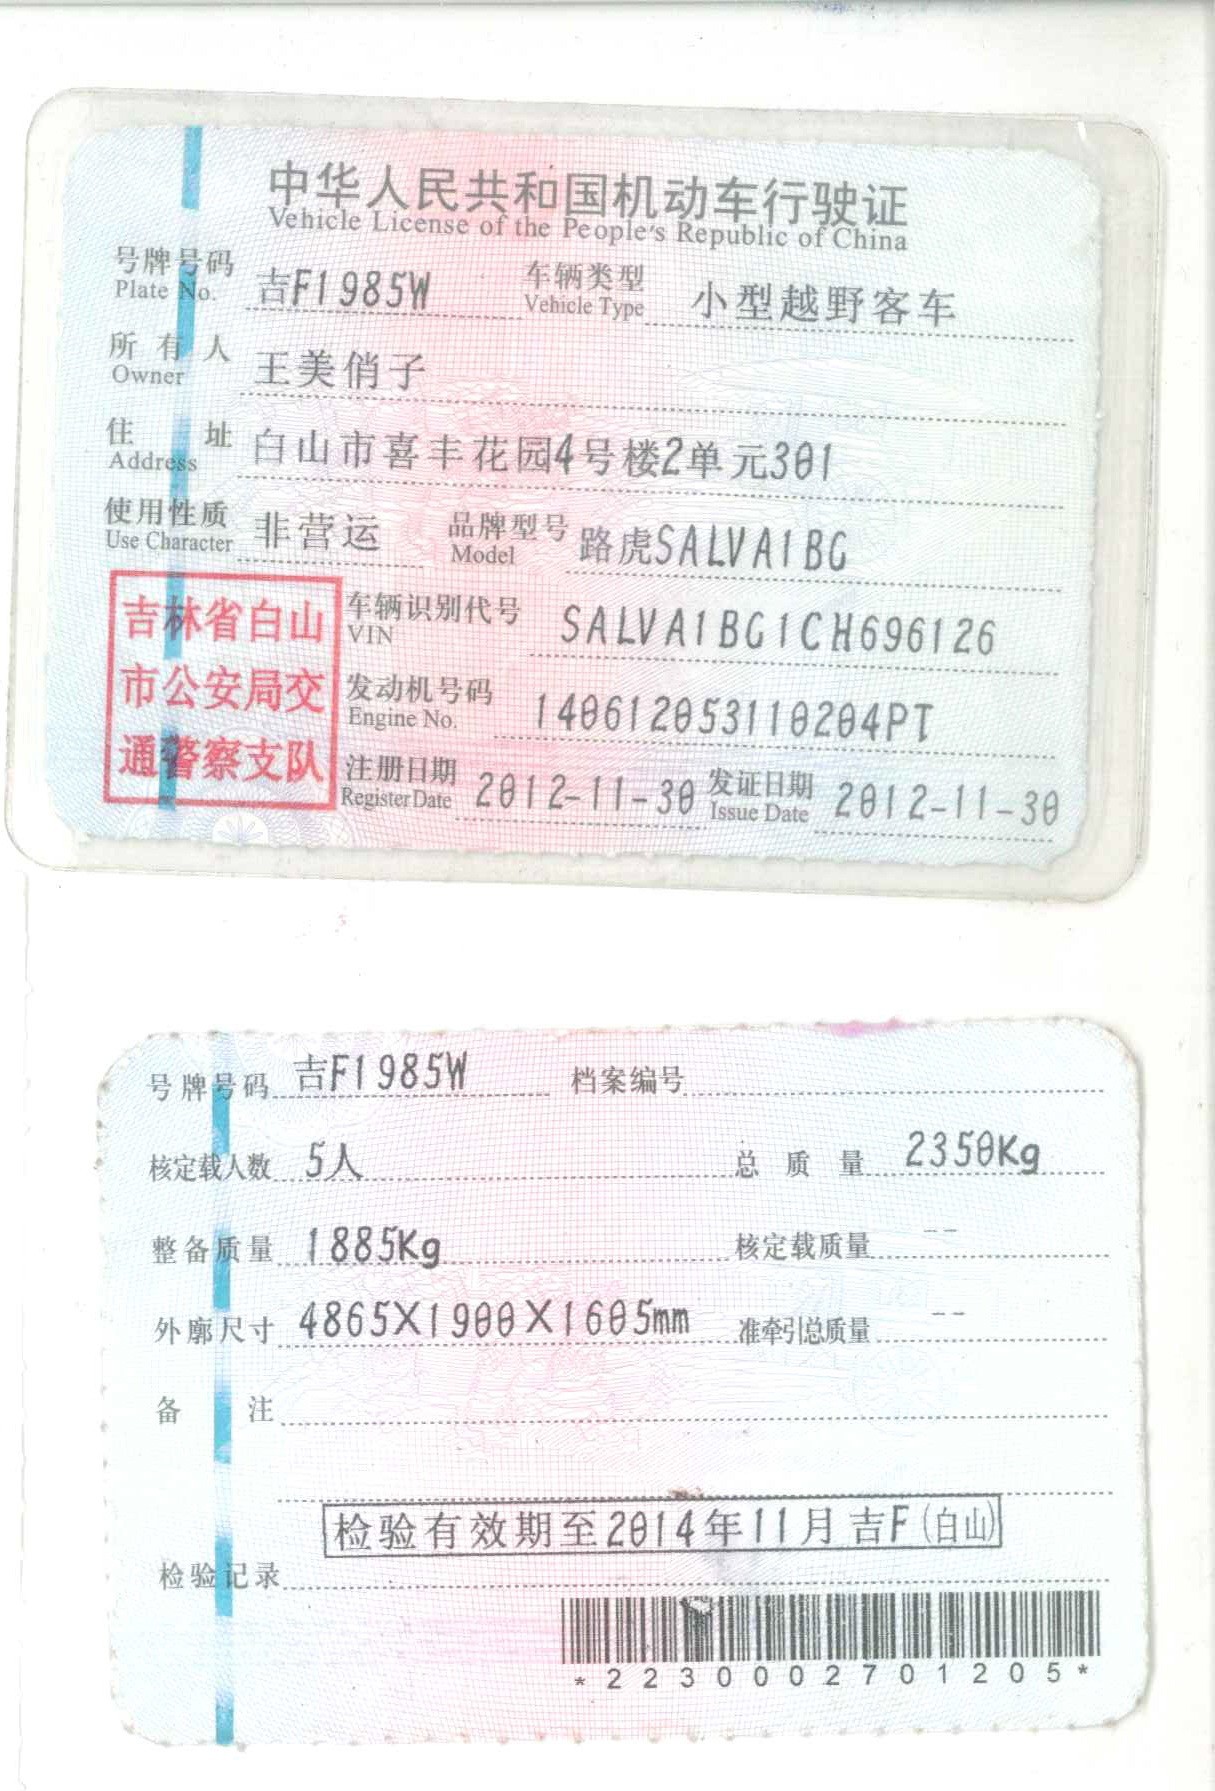 中华人民共和国机动车行驶证
Vehicle License of the People's Republic of China
号牌号码 吉F1985W 车辆类型 小型越野客车
Plate No. Vehicle Type
所有人 王美俏子
Owner
住址 白山市喜丰花园4号楼2单元301
Address
使用性质 非营运 品牌型号 路虎SALVA1BG
Use Character Model
吉林省白山
市公安局交
通警察支队
车辆识别代号 SALVA1BG1CH696126
VIN
发动机号码 140612053110204PT
Engine No.
注册日期 2012-11-30 发证日期 2012-11-30
Register Date Issue Date
号牌号码 吉F1985W 档案编号
核定载人数 5人 总质量 2350Kg
整备质量 1885Kg 核定载质量 --
外廓尺寸 4865X1900X1605mm 准牵引总质量 --
备注
检验有效期至2014年11月吉F(白山)
检验记录
*2230002701205*